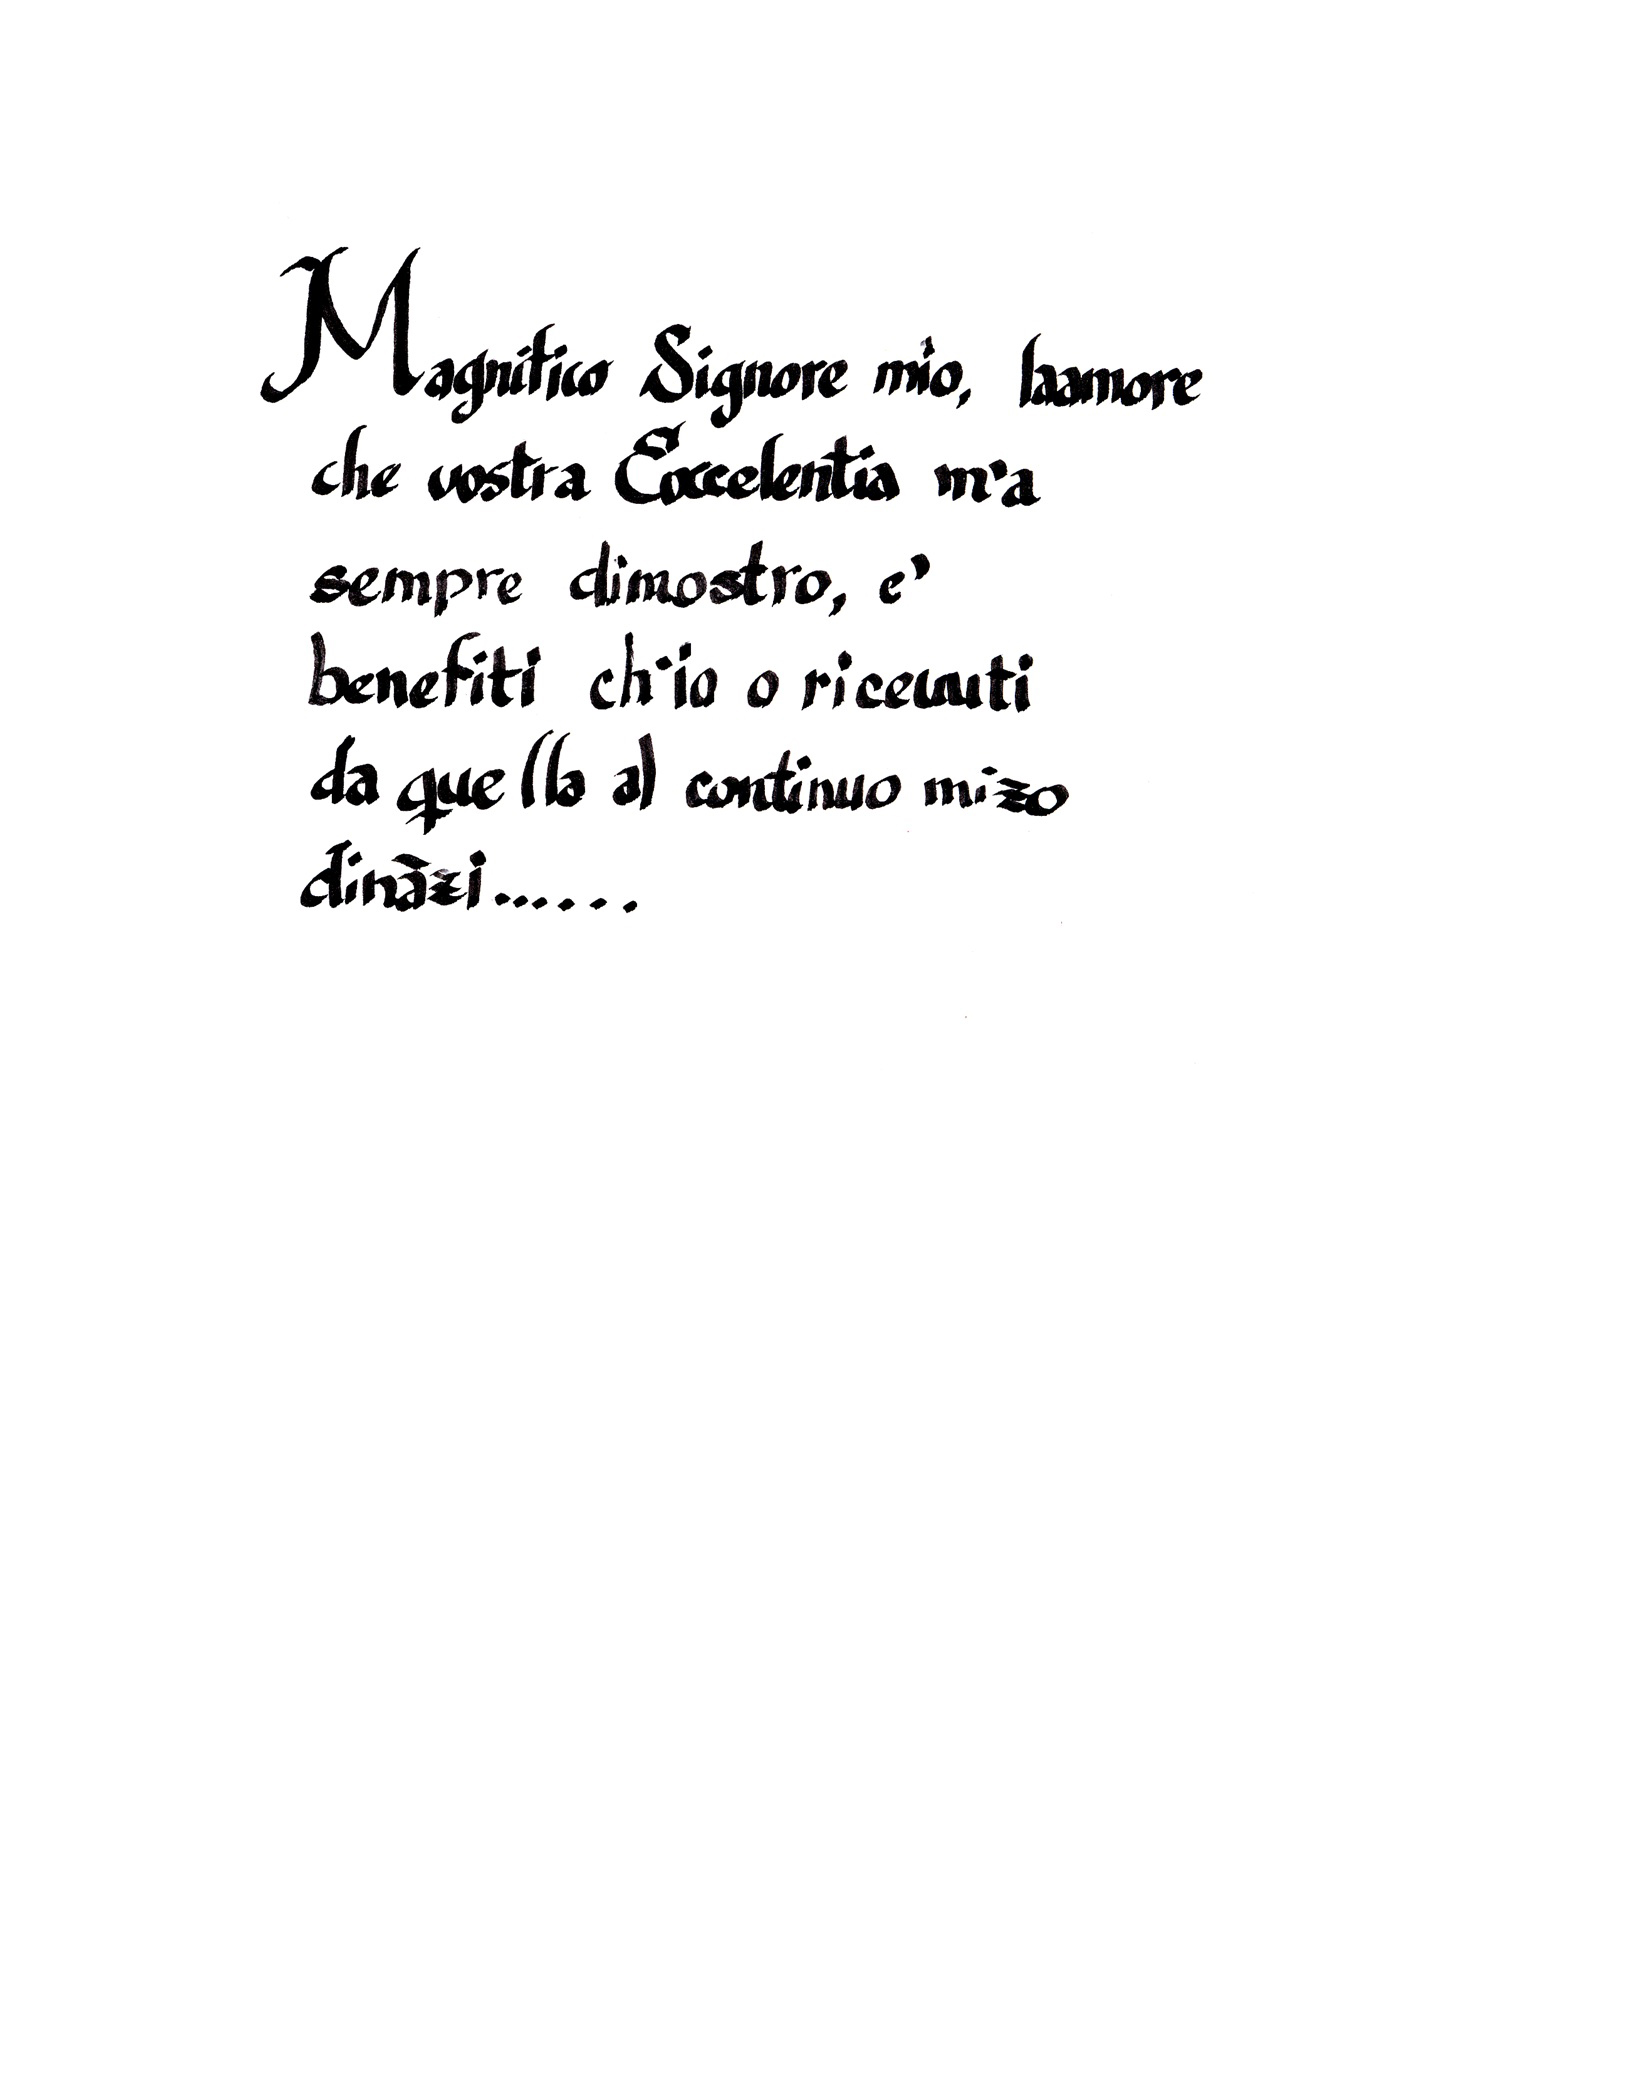 Magnifico Signore mio, laamore
che vostra Excelentia m'a
sempre dimostro, e'
benefiti ch'io o ricevuti
da quella al continuo mizo
dinàzi.......